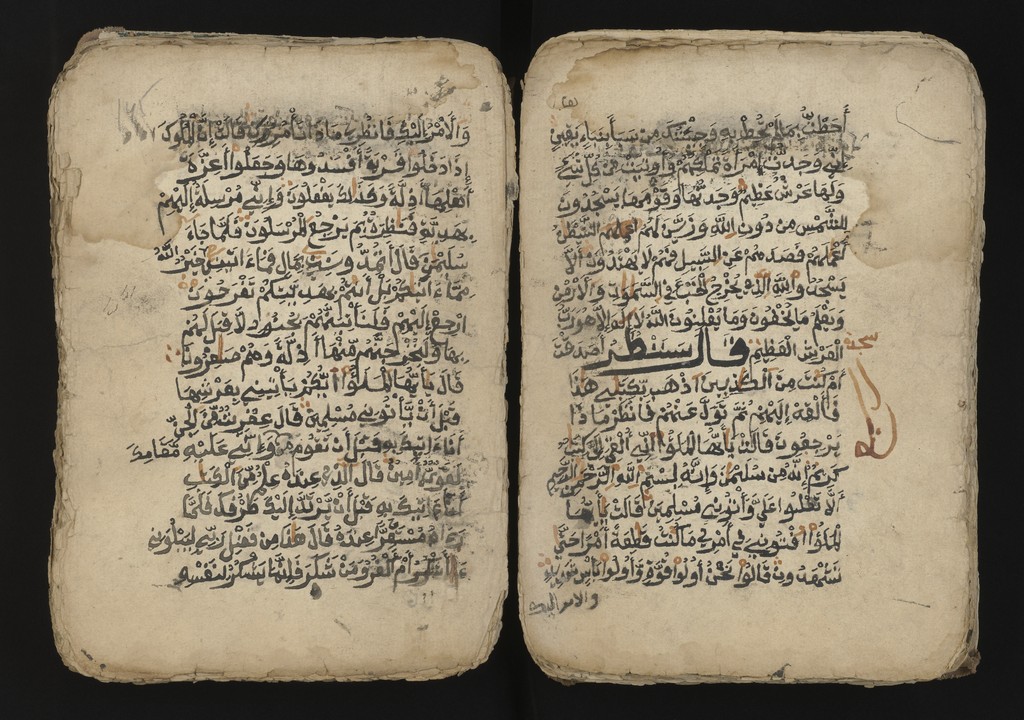 أَحَطْتُ بِمَا لَمْ تُحِطْ بِهِ وَجِئْتُكَ مِنْ سَبَإٍ بِنَبَإٍ يَقِينٍ
إِنِّي وَجَدتُّ امْرَأَةً تَمْلِكُهُمْ وَأُوتِيَتْ مِنْ كُلِّ شَيْءٍ
وَلَهَا عَرْشٌ عَظِيمٌ وَجَدتُّهَا وَقَوْمَهَا يَسْجُدُونَ
لِلشَّمْسِ مِنْ دُونِ اللَّهِ وَزَيَّنَ لَهُمُ اعملهم الشَّيْطَنُ
أَعْمَلَهُمْ فَصَدَّهُمْ عَنِ السَّبِيلِ فَهُمْ لَا يَهْتَدُونَ أَلَّا
يَسْجُدُوا لِلَّهِ الَّذِي يُخْرِجُ الْخَبْءَ فِي السَّمَوَاتِ وَالْأَرْضِ
وَيَعْلَمُ مَا يُخْفُونَ وَمَا يُعْلِنُونَ اللَّهُ لَا إِلَهَ إِلَّا هُوَ رَبُّ
الْعَرْشِ الْعَظِيمِ قَالَ سَنَنْظُرُ أَصَدَقْتَ
سجدة
أَمْ كُنْتَ مِنَ الْكَذِبِينَ اذْهَبْ بِكِتَبِي هَذَا
فَأَلْقِهْ إِلَيْهِمْ ثُمَّ تَوَلَّ عَنْهُمْ فَانْظُرْ مَاذَا
يَرْجِعُونَ قَالَتْ يَأَيُّهَا الْمَلَؤُا إِنِّي أُلْقِيَ إِلَيَّ كِتَبٌ
كَرِيمٌ إِنَّهُ مِنْ سُلَيْمَنَ وَإِنَّهُ بِسْمِ اللَّهِ الرَّحْمَنِ الرَّحِيمِ
أَلَّا تَعْلُوا عَلَيَّ وَأْتُونِي مُسْلِمِينَ قَالَتْ يَأَيُّهَا
الْمَلَؤُا أَفْتُونِي فِي أَمْرِي مَا كُنْتُ قَاطِعَةً أَمْرًا حَتَّى
تَشْهَدُونِ قَالُوا نَحْنُ أُولُوا قُوَّةٍ وَأُولُوا بَأْسٍ شَدِيدٍ
والامر اليك
وَالْأَمْرُ إِلَيْكِ فَانْظُرِي مَاذَا تَأْمُرِينَ قَالَتْ إِنَّ الْمُلُوكَ
إِذَا دَخَلُوا قَرْيَةً أَفْسَدُوهَا وَجَعَلُوا أَعِزَّةَ
أَهْلِهَا أَذِلَّةً وَكَذَلِكَ يَفْعَلُونَ وَإِنِّي مُرْسِلَةٌ إِلَيْهِمْ
بِهَدِيَّةٍ فَنَظِرَةٌ بِمَ يَرْجِعُ الْمُرْسَلُونَ فَلَمَّا جَاءَ
سُلَيْمَنَ قَالَ أَتُمِدُّونَنِ بِمَالٍ فَمَا ءَاتَينِيَ اللَّهُ خَيْرٌ
مِمَّا ءَاتَيكُمْ بَلْ أَنْتُمْ بِهَدِيَّتِكُمْ تَفْرَحُونَ
ارْجِعْ إِلَيْهِمْ فَلَنَأْتِيَنَّهُمْ بِجُنُودٍ لَا قِبَلَ لَهُمْ
بِهَا وَلَنُخْرِجَنَّهُمْ مِنْهَا أَذِلَّةً وَهُمْ صَغِرُونَ
قَالَ يَأَيُّهَا الْمَلَؤُا أَيُّكُمْ يَأْتِينِي بِعَرْشِهَا
قَبْلَ أَنْ يَأْتُونِي مُسْلِمِينَ قَالَ عِفْرِيتٌ مِنَ الْجِنِّ
أَنَا ءَاتِيكَ بِهِ قَبْلَ أَنْ تَقُومَ مِنْ مَقَامِكَ وَإِنِّي عَلَيْهِ
لَقَوِيٌّ أَمِينٌ قَالَ الَّذِي عِنْدَهُ عِلْمٌ مِنَ الْكِتَبِ
أَنَا ءَاتِيكَ بِهِ قَبْلَ أَنْ يَرْتَدَّ إِلَيْكَ طَرْفُكَ فَلَمَّا
رَءَاهُ مُسْتَقِرًّا عِنْدَهُ قَالَ هَذَا مِنْ فَضْلِ رَبِّي لِيَبْلُوَنِي
ءَأَشْكُرُ أَمْ أَكْفُرُ وَمَنْ شَكَرَ فَإِنَّمَا يَشْكُرُ لِنَفْسِهِ